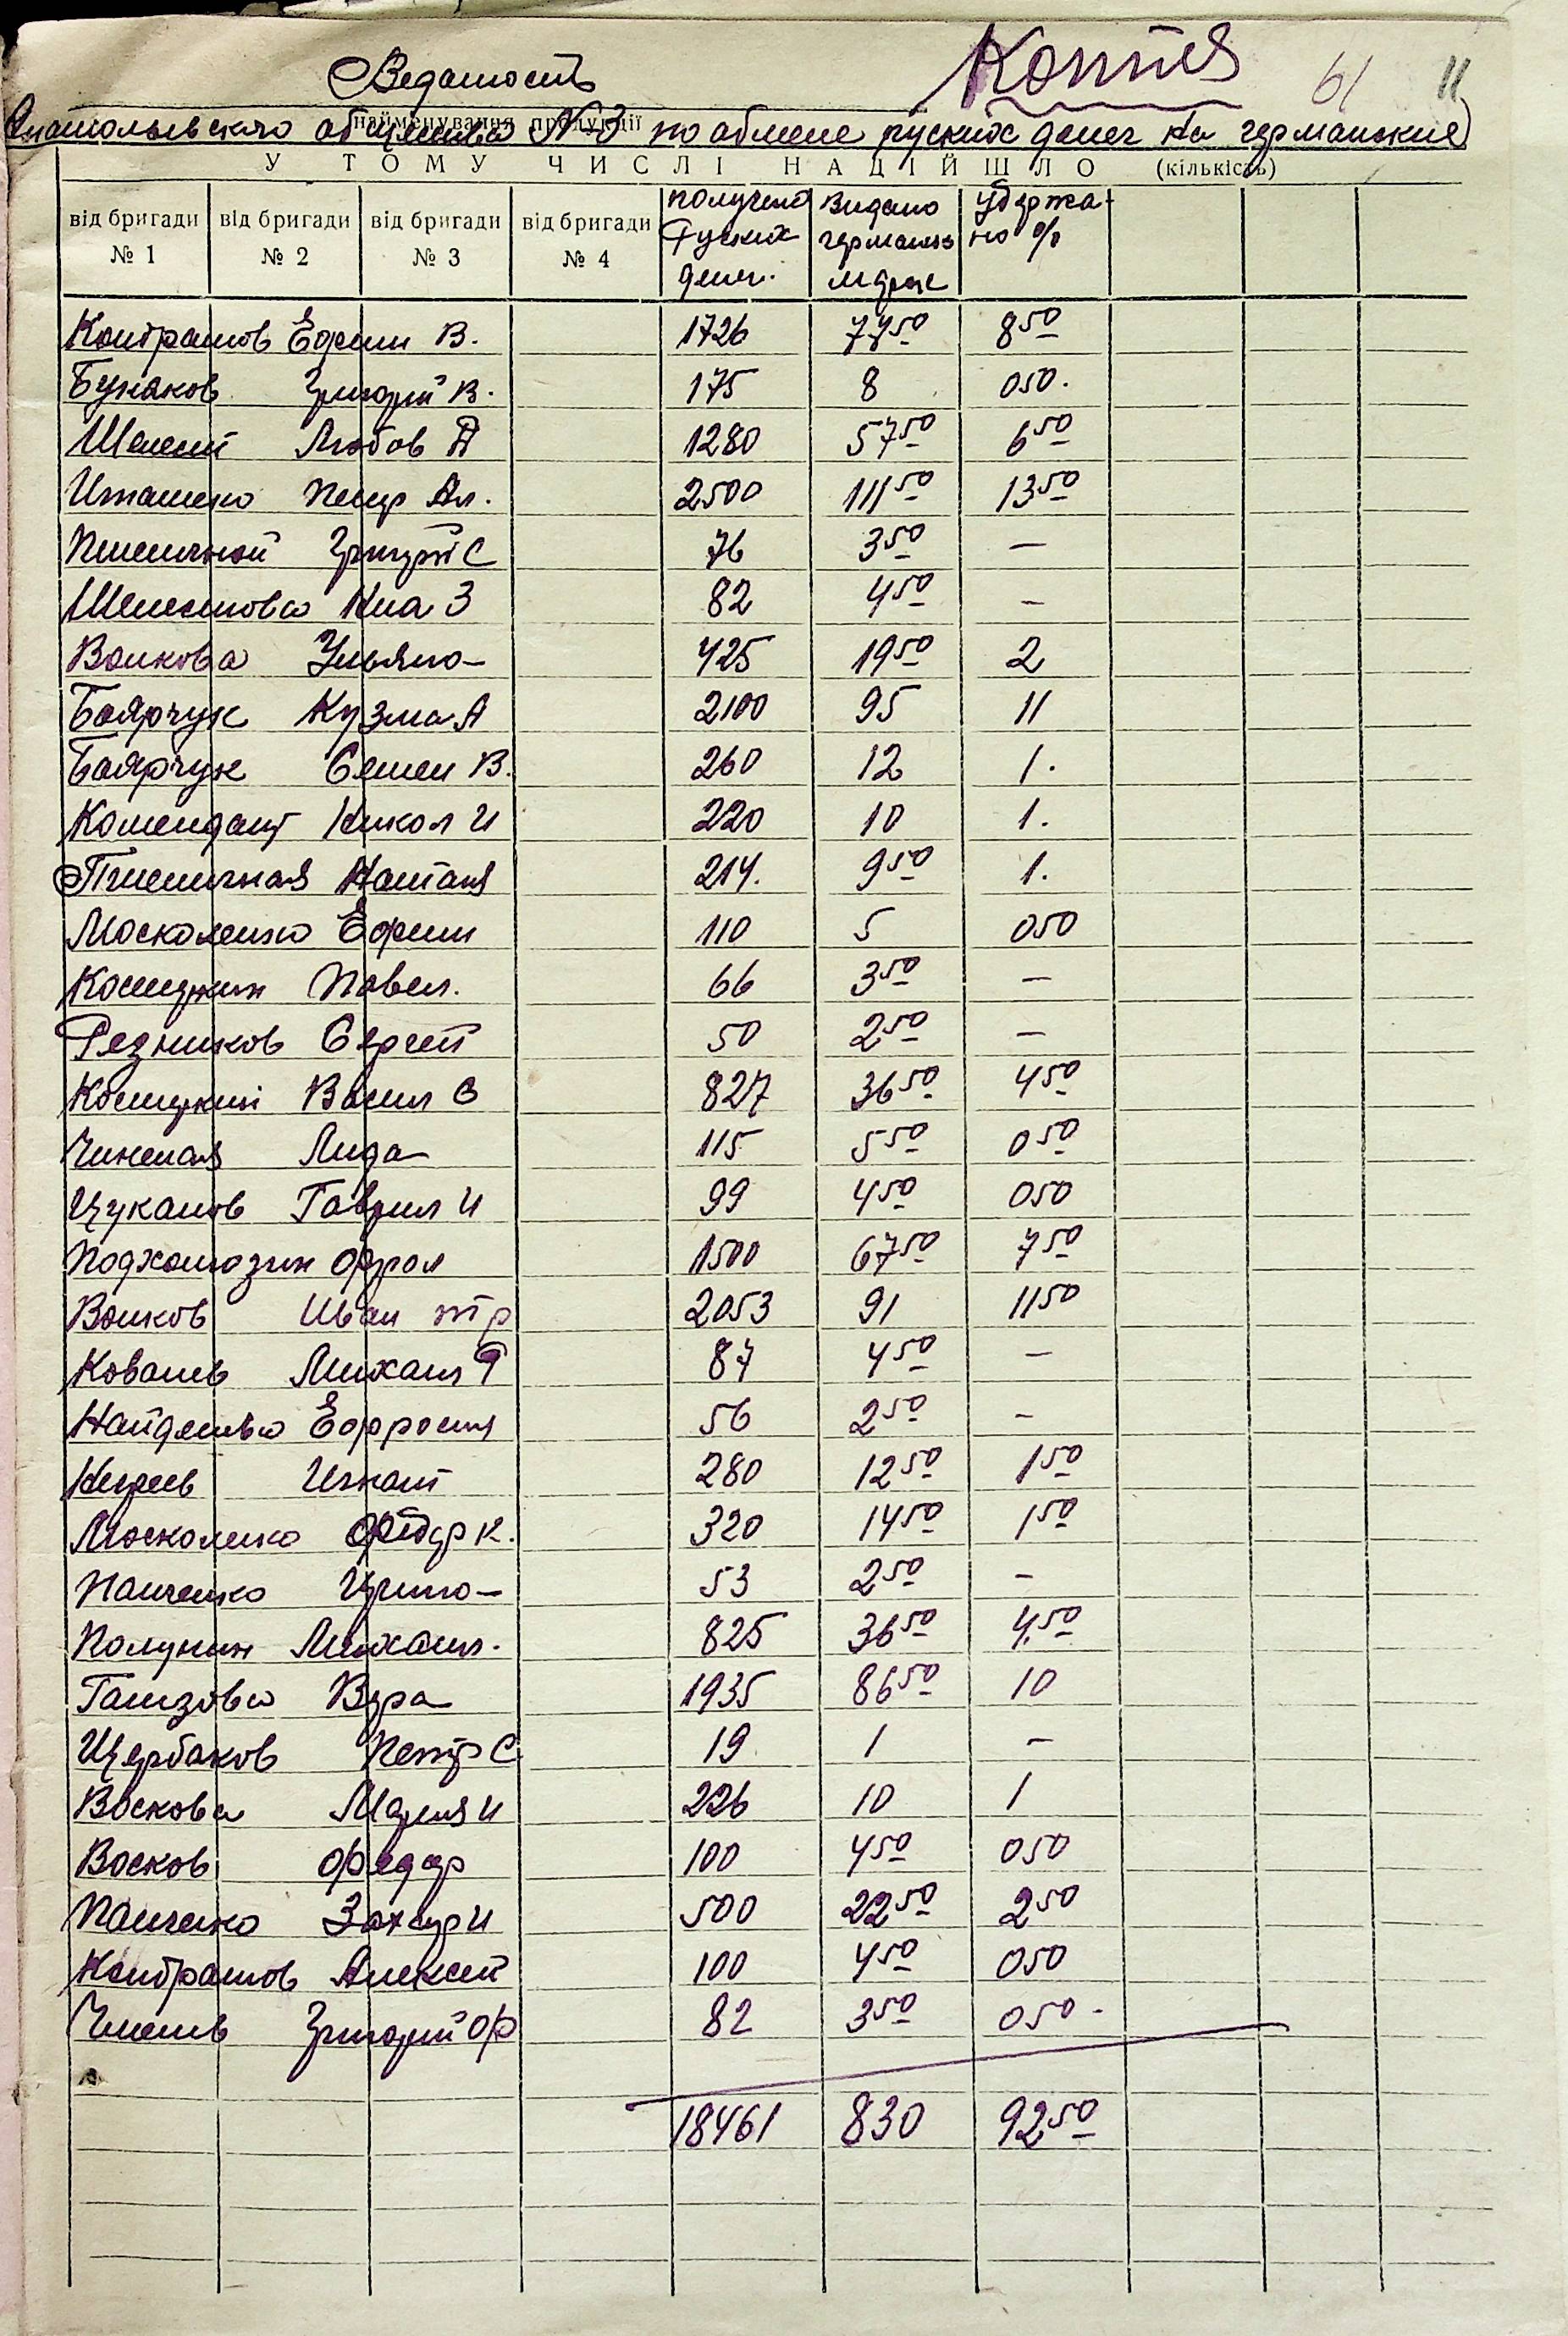 Ведомость Копия 61 11
Анатольевского общества № 3 по обмене руских денег на германские
найменування продукції
У ТОМУ ЧИСЛІ НАДІЙШЛО (кількість)
від бригади № 1 від бригади № 2 від бригади № 3 від бригади № 4 получено Руских денег. Видано германьх марок Удержано %
Кондрашов Ефим В. 1726 77 50 8 50
Бунаков Григорий В. 175 8 0 50.
Шелест Любов 1280 57 50 6 50
Игнатенко Петр Ал. 2500 111 50 13 50
Пшеничной Григорий С 76 3 50 —
Шелестова З 82 4 50 —
Волкова Ульяна 425 19 50 2
Боярчук Кузма А 2100 95 11
Боярчук Семен В. 260 12 1.
Комендант Никол И 220 10 1.
Пшеничная Наталя 214. 9 50 1.
Москаленко Ефим 110 5 0 50
Павел. 66 3 50 —
Резников Сергей 50 2 50 —
Васил С 827 36 50 4 50
Лида 115 5 50 0 50
Цуканов Гаврил И 99 4 50 0 50
Фрол 1500 67 50 7 50
Волков Иван 2053 91 11 50
Ковалев Михаил 87 4 50 —
Найденова Ефросиня 56 2 50 —
Игнат 280 12 50 1 50
Москаленко Федор К. 320 14 50 1 50
Панченко 53 2 50 —
Полунин Михаил. 825 36 50 4.50
Вера 1935 86 50 10
Щербаков Петр С 19 1 —
Воскова Мария И 226 10 1
Восков Федор 100 4 50 0 50
Панченко Захар И 500 22 50 2 50
Кондрашов Алексей 100 4 50 0 50
Григорий Ф 82 3 50 0 50 -
18461 830 92 50